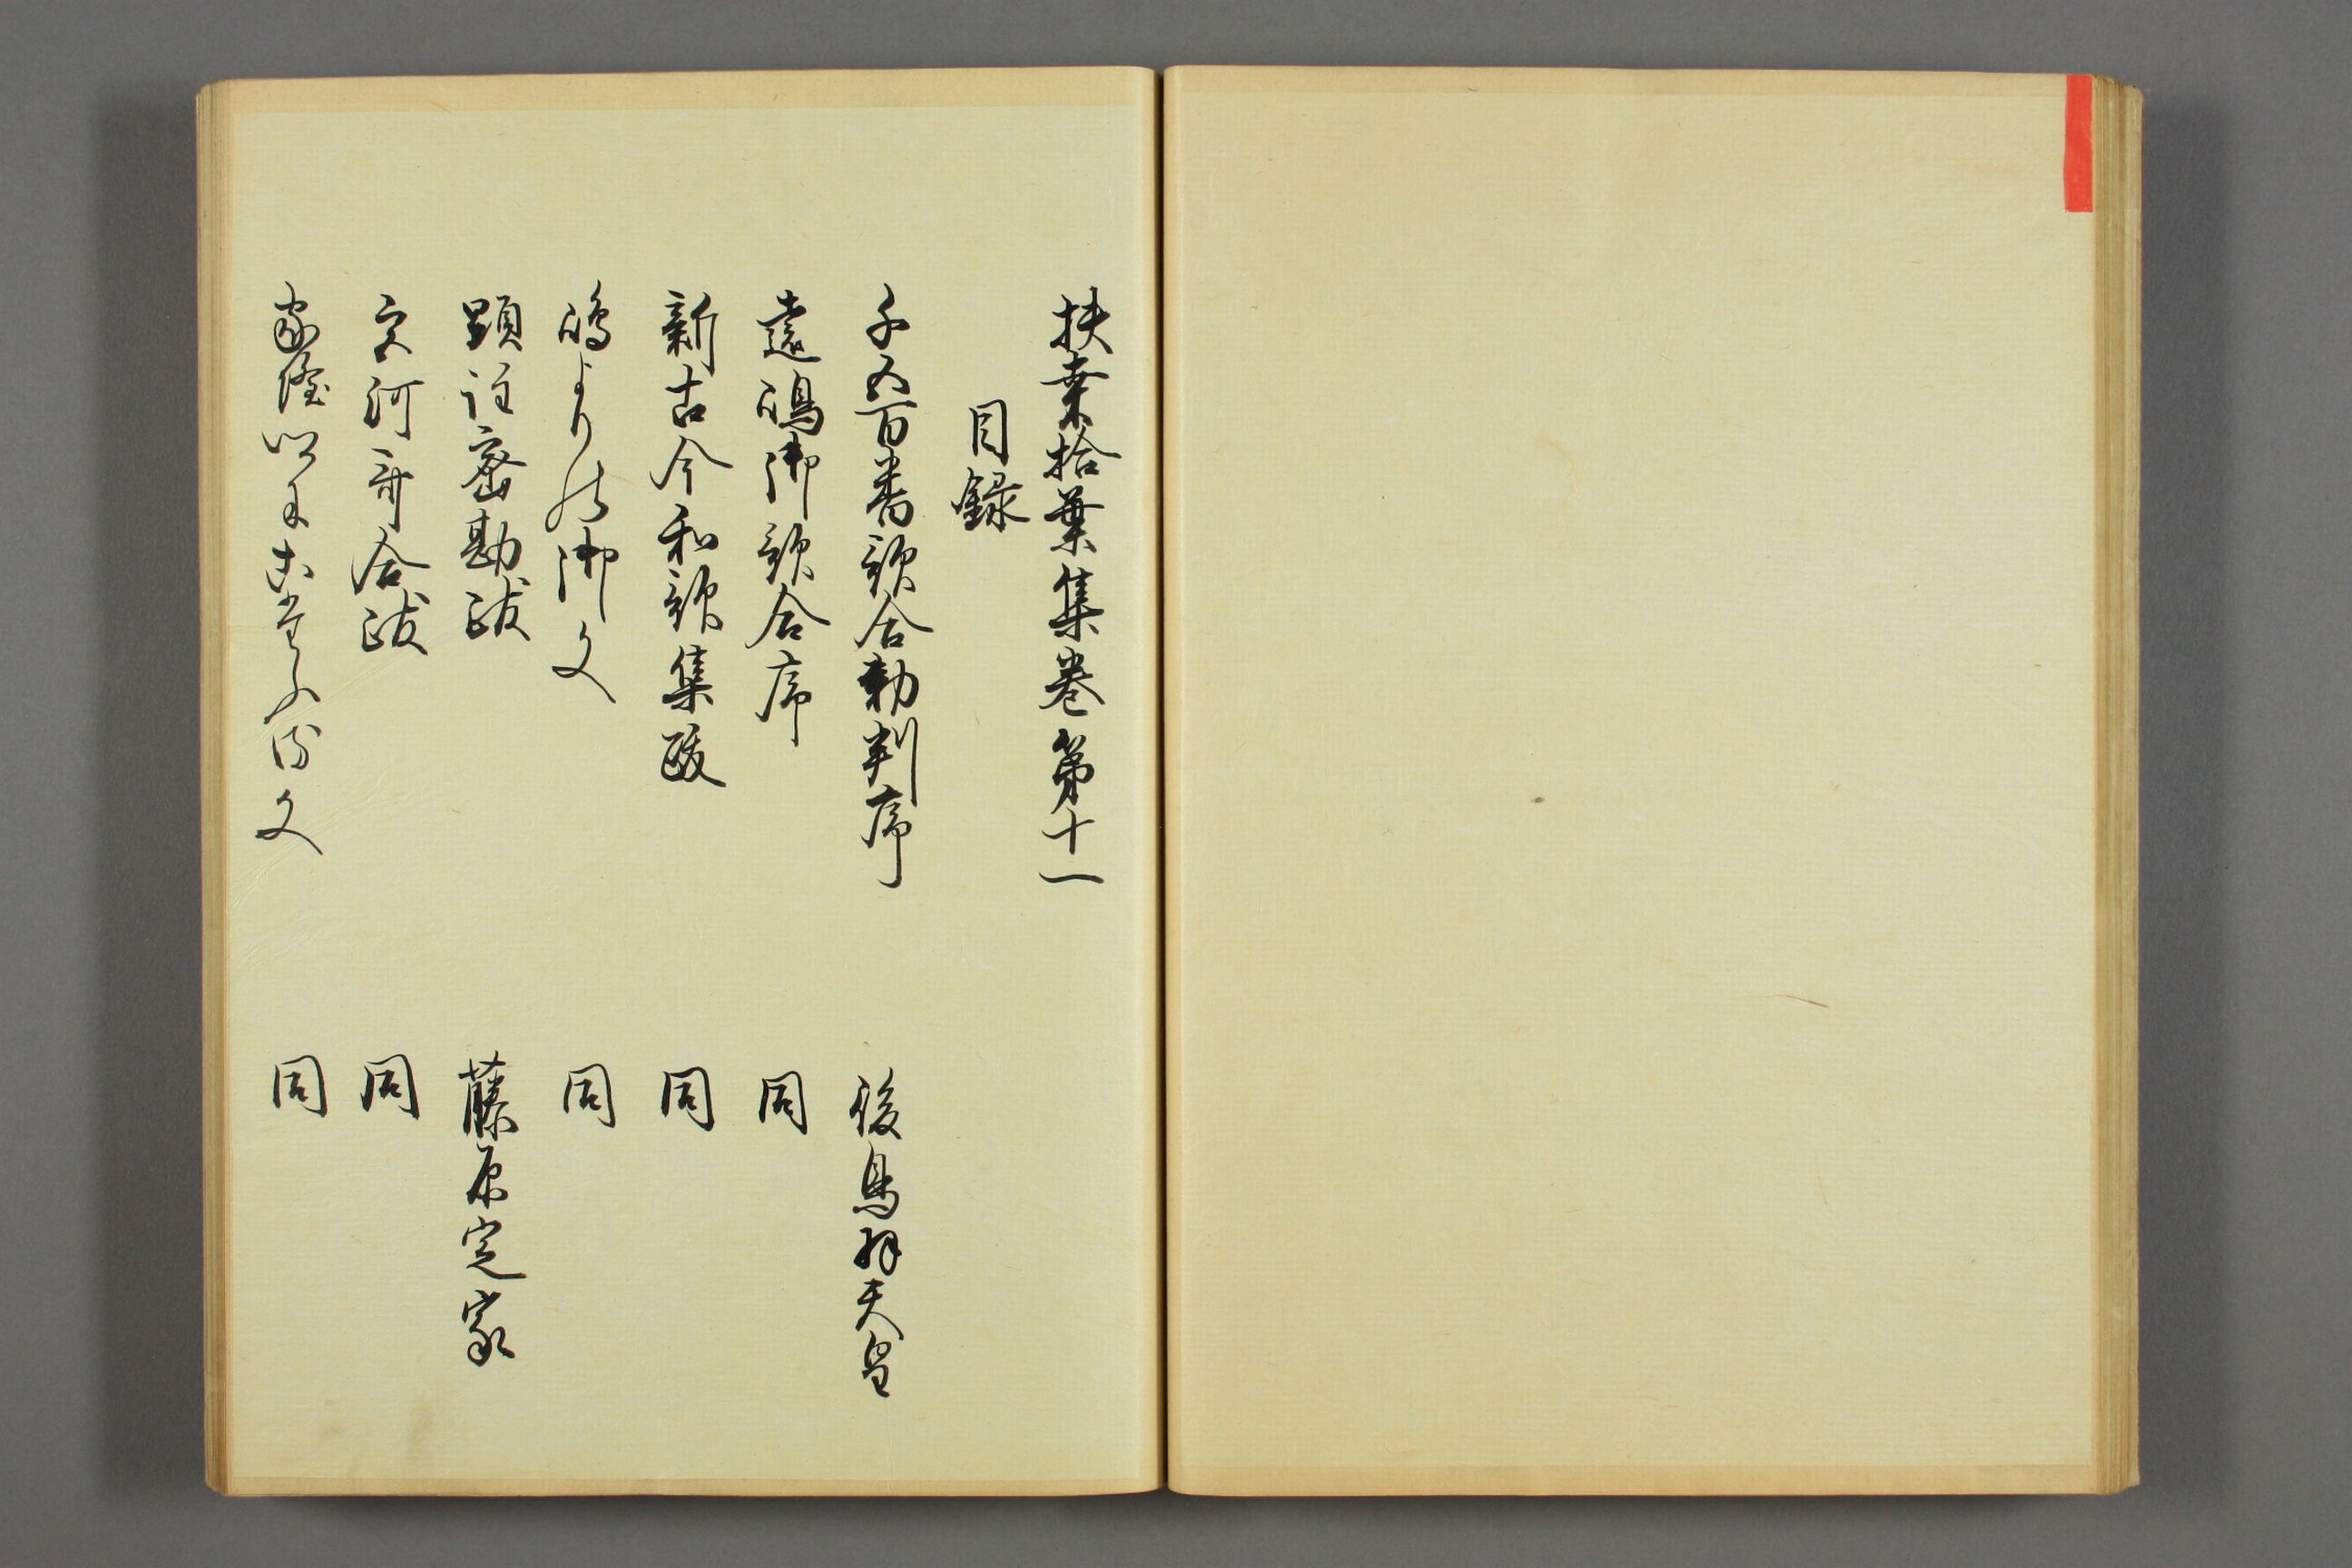 扶桑拾葉集巻第十一
目録
千五百番歌合勅判序 後鳥羽天皇
遠嶋御歌合序 同
新古今和歌集跋 同
嶋よりの御文 同
顕註密勘跋 藤原定家
宮河哥合跋 同
家隆卿にこたふる文 同